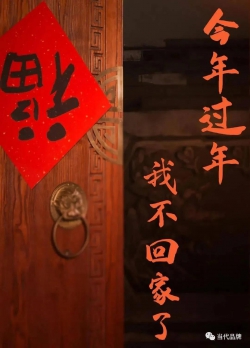 今年过年
我不回家了
福
当代品牌